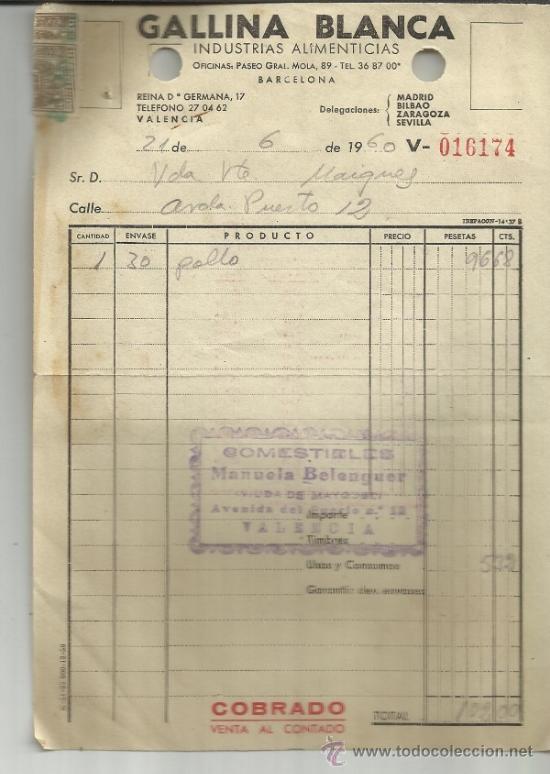 GALLINA BLANCA
INDUSTRIAS ALIMENTICIAS
OFICINAS: PASEO GRAL. MOLA, 89 - TEL. 36 87 00*
BARCELONA
REINA Dª GERMANA, 17
TELEFONO 27 04 62
VALENCIA
Delegaciones: MADRID
BILBAO
ZARAGOZA
SEVILLA
21 de 6 de 1960 V- 016174
Sr. D. Vda Vte Maigues
Calle Avda. Puerto 12
CANTIDAD ENVASE PRODUCTO PRECIO PESETAS CTS.
1 30 pollo 96 68
COMESTIBLES
Manuela Belenguer
VIUDA DE
Avenida del Puerto n.º 12
VALENCIA
Importe
Timbres
Usos y Consumos
Garantía dev. envases
COBRADO
VENTA AL CONTADO
TOTAL
todocoleccion
www.todocoleccion.net